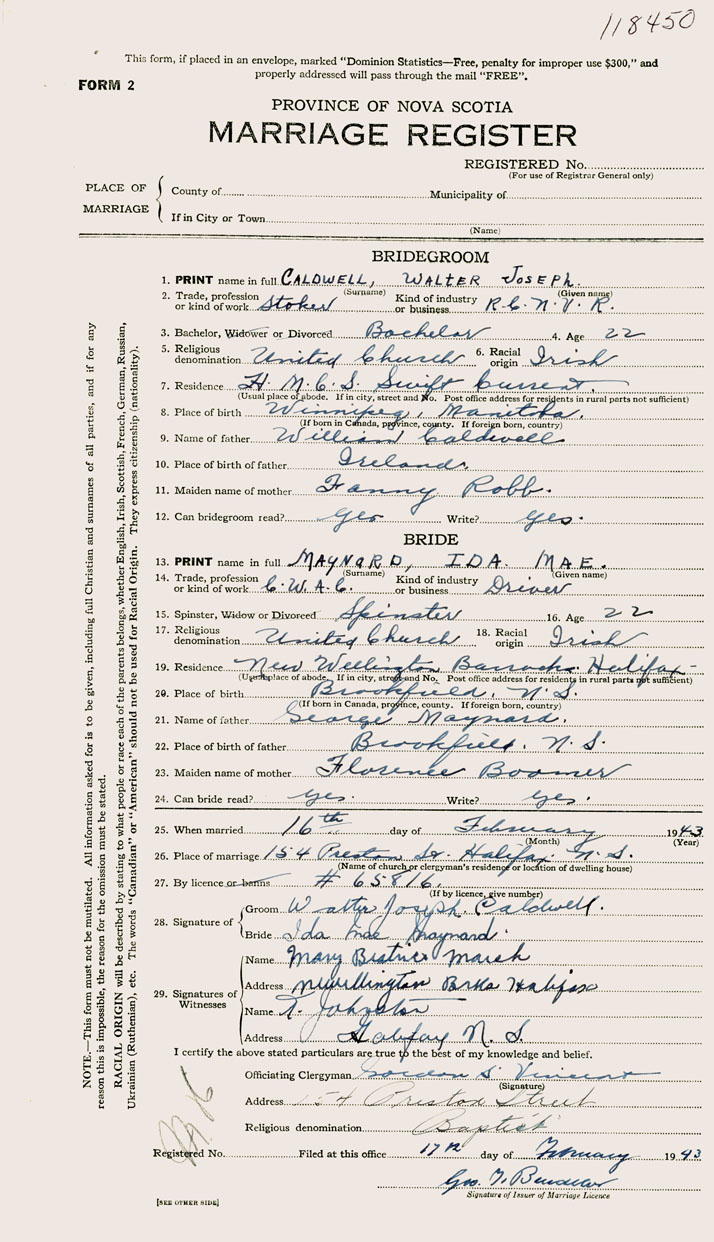 118450
This form, if placed in an envelope, marked "Dominion Statistics—Free, penalty for improper use $300," and
properly addressed will pass through the mail "FREE".
FORM 2
PROVINCE OF NOVA SCOTIA
MARRIAGE REGISTER
REGISTERED No.
(For use of Registrar General only)
PLACE OF MARRIAGE
County of Municipality of
If in City or Town
(Name)
BRIDEGROOM
1. PRINT name in full CALDWELL, WALTER JOSEPH.
(Surname) (Given name)
2. Trade, profession or kind of work Stoker Kind of industry or business R.C.N.V.R.
3. Bachelor, Widower or Divorced Bachelor 4. Age 22
5. Religious denomination United Church 6. Racial origin Irish
7. Residence H.M.C.S. Swift Current.
(Usual place of abode. If in city, street and No. Post office address for residents in rural parts not sufficient)
8. Place of birth Winnipeg, Manitoba.
(If born in Canada, province, county. If foreign born, country)
9. Name of father William Caldwell
10. Place of birth of father Ireland.
11. Maiden name of mother Fanny Robb.
12. Can bridegroom read? Yes Write? Yes.
BRIDE
13. PRINT name in full MAYNARD, IDA. MAE.
(Surname) (Given name)
14. Trade, profession or kind of work C.W.A.C. Kind of industry or business Driver
15. Spinster, Widow or Divorced Spinster 16. Age 22
17. Religious denomination United Church 18. Racial origin Irish
19. Residence New Wellington Barracks. Halifax
(Usual place of abode. If in city, street and No. Post office address for residents in rural parts not sufficient)
20. Place of birth Brookfield, N.S.
(If born in Canada, province, county. If foreign born, country)
21. Name of father George Maynard.
22. Place of birth of father Brookfield. N.S.
23. Maiden name of mother Florence Boomer
24. Can bride read? yes. Write? yes.
25. When married 16th day of February 1943
(Month) (Year)
26. Place of marriage 154 Preston St. Halifax N.S.
(Name of church or clergyman's residence or location of dwelling house)
27. By licence or banns # 65816.
(If by licence, give number)
28. Signature of Groom Walter Joseph. Caldwell.
Bride Ida Mae Maynard.
29. Signatures of Witnesses
Name Mary Beatrice March
Address Nwellington Brks Halifax
Name R. Johnston
Address Halifax N.S.
I certify the above stated particulars are true to the best of my knowledge and belief.
Officiating Clergyman Gordon S. Vincent
(Signature)
Address 154 Preston Street
Religious denomination Baptist
Registered No. Filed at this office 17th day of February 1943
Signature of Issuer of Marriage Licence
[SEE OTHER SIDE]
NOTE.—This form must not be mutilated. All information asked for is to be given, including full Christian and surnames of all parties, and if for any
reason this is impossible, the reason for the omission must be stated.
RACIAL ORIGIN will be described by stating to what people or race each of the parents belongs, whether English, Irish, Scottish, French, German, Russian,
Ukrainian (Ruthenian), etc. The words "Canadian" or "American" should not be used for Racial Origin. They express citizenship (nationality).